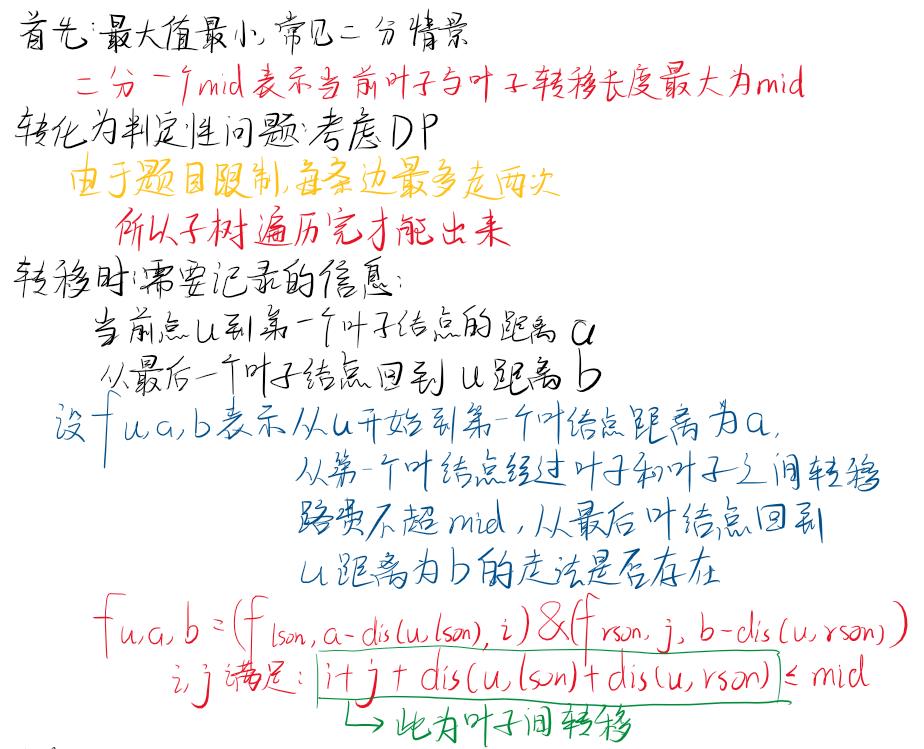 首先:最大值最小,常见二分情景
二分一个mid表示当前叶子与叶子转移长度最大为mid
转化为判定性问题:考虑DP
由于题目限制,每条边最多走两次
所以子树遍历完才能出来
转移时:需要记录的信息:
当前点u到第一个叶子结点的距离a
从最后一个叶子结点回到u距离b
设f u,a,b表示从u开始到第一个叶结点距离为a,
从第一个叶结点经过叶子和叶子之间转移
路费不超mid,从最后叶结点回到
u距离为b的走法是否存在
f u,a,b = (f lson, a-dis(u,lson), i) & (f rson, j, b-dis(u,rson))
i,j满足: i+j+dis(u,lson)+dis(u,rson) ≤ mid
↳此为叶子间转移